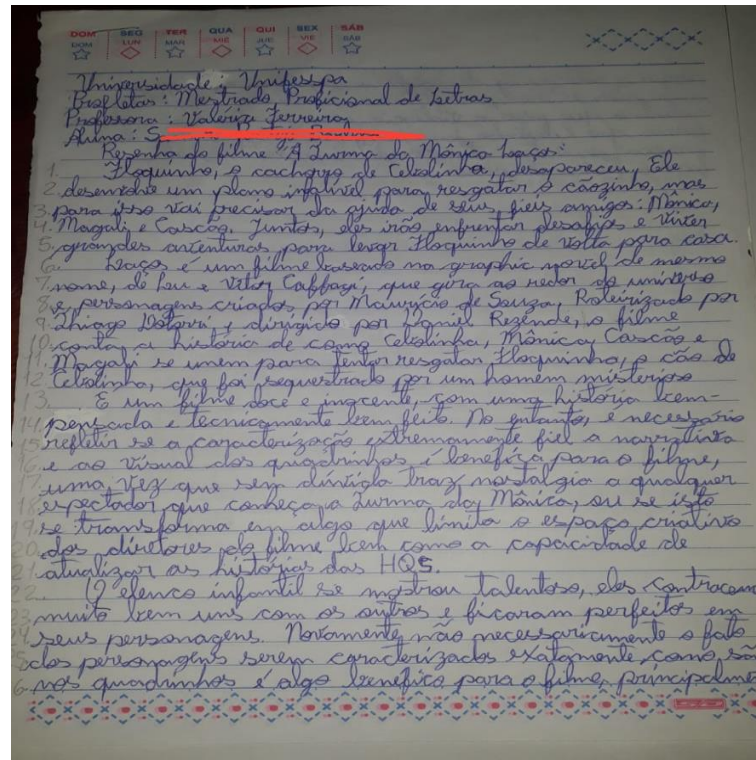 DOM SEG TER QUA QUI SEX SÁB
DOM LUN MAR MIÉ JUE VIE SÁB
Universidade: Unifesspa
Profletas: Mestrado Proficional de Letras
Professora: Valéria Ferreira
Aluna: S
Rezenha do filme "A Turma da Mônica Laços:
1. Floquinho, o cachorro de Cebolinha, desapareceu, Ele
2. desenvolve um plano infalível para resgatar o cãozinho, mas
3. para isso vai precisar da ajuda de seus fieis amigos: Mônica,
4. Magali e Cascão. Juntos, eles irão enfrentar desafios e viver
5. grandes aventuras para levar Floquinho de volta para casa.
6. Laços é um filme baseado na graphic novel de mesmo
7. nome, de Lu e Vitor Caffagi, que gira ao redor do universo
8. e personagens criados por Mauricio de Souza, Roteirizado por
9. Thiago Dotorri e dirigido por Daniel Rezende, o filme
10. conta a história de como Cebolinha, Mônica, Cascão e
11. Magali se unem para tentar resgatar Floquinho, o cão de
12. Cebolinha, que foi sequestrado por um homem misterioso
13. É um filme doce e inocente, com uma história bem-
14. pensada e tecnicamente bem feito. No entanto, é necessário
15. refletir se a caracterização extremamente fiel a narrativa
16. e ao visual dos quadrinhos é benefica para o filme,
17. uma vez que sem dúvida traz nostalgia a qualquer
18. espectador que conheça a Turma da Mônica, ou se isto
19. se transforma em algo que limita o espaço criativo
20. dos diretores do filme bem como a capacidade de
21. atualizar as histórias das HQS.
22. O elenco infantil se mostrou talentoso, eles contracem
23. muito bem uns com os outros e ficaram perfeitos em
24. seus personagens. Novamente, não necessariamente o fato
5. dos personagens serem caracterizados exatamente como são
6. nos quadrinhos é algo benefico para o filme, principalme